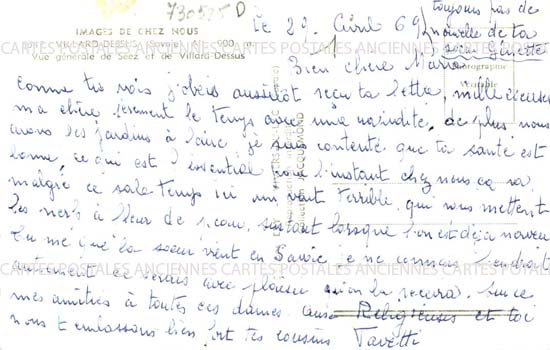 730525 D
IMAGES DE CHEZ NOUS
VILLARD-DESSUS (Savoie) 900 m
Vue générale de Séez et de Villard-Dessus
Le 29 Avril 69
toujours pas de
nouvelle de ta
sœur ginette
Bien chère Marie
Comme tu vois j'obéis aussitôt reçu ta lettre, mille excuses
ma chère, vraiment le temps avec une rapidité, de plus nous
avons les jardins à faire, je suis contente que ta santé est
bonne, ce qui est l'essentiel pour l'instant chez nous ça va
malgré ce sale temps ici un vent terrible, qui nous mettent
les nerfs à fleur de peau, surtout lorsque l'on est déjà nerveux
Tu me que la sœur vient en Savoie je ne connais l'endroit
autrement ce serais avec plaisir qu'on la recevra. Sur ce
mes amitiés à toutes ces dames Religieuses et toi
nous t'embrassons bien fort tes cousins Tavetti
CARTES POSTALES ANCIENNES CARTES POSTALES ANCIENNES